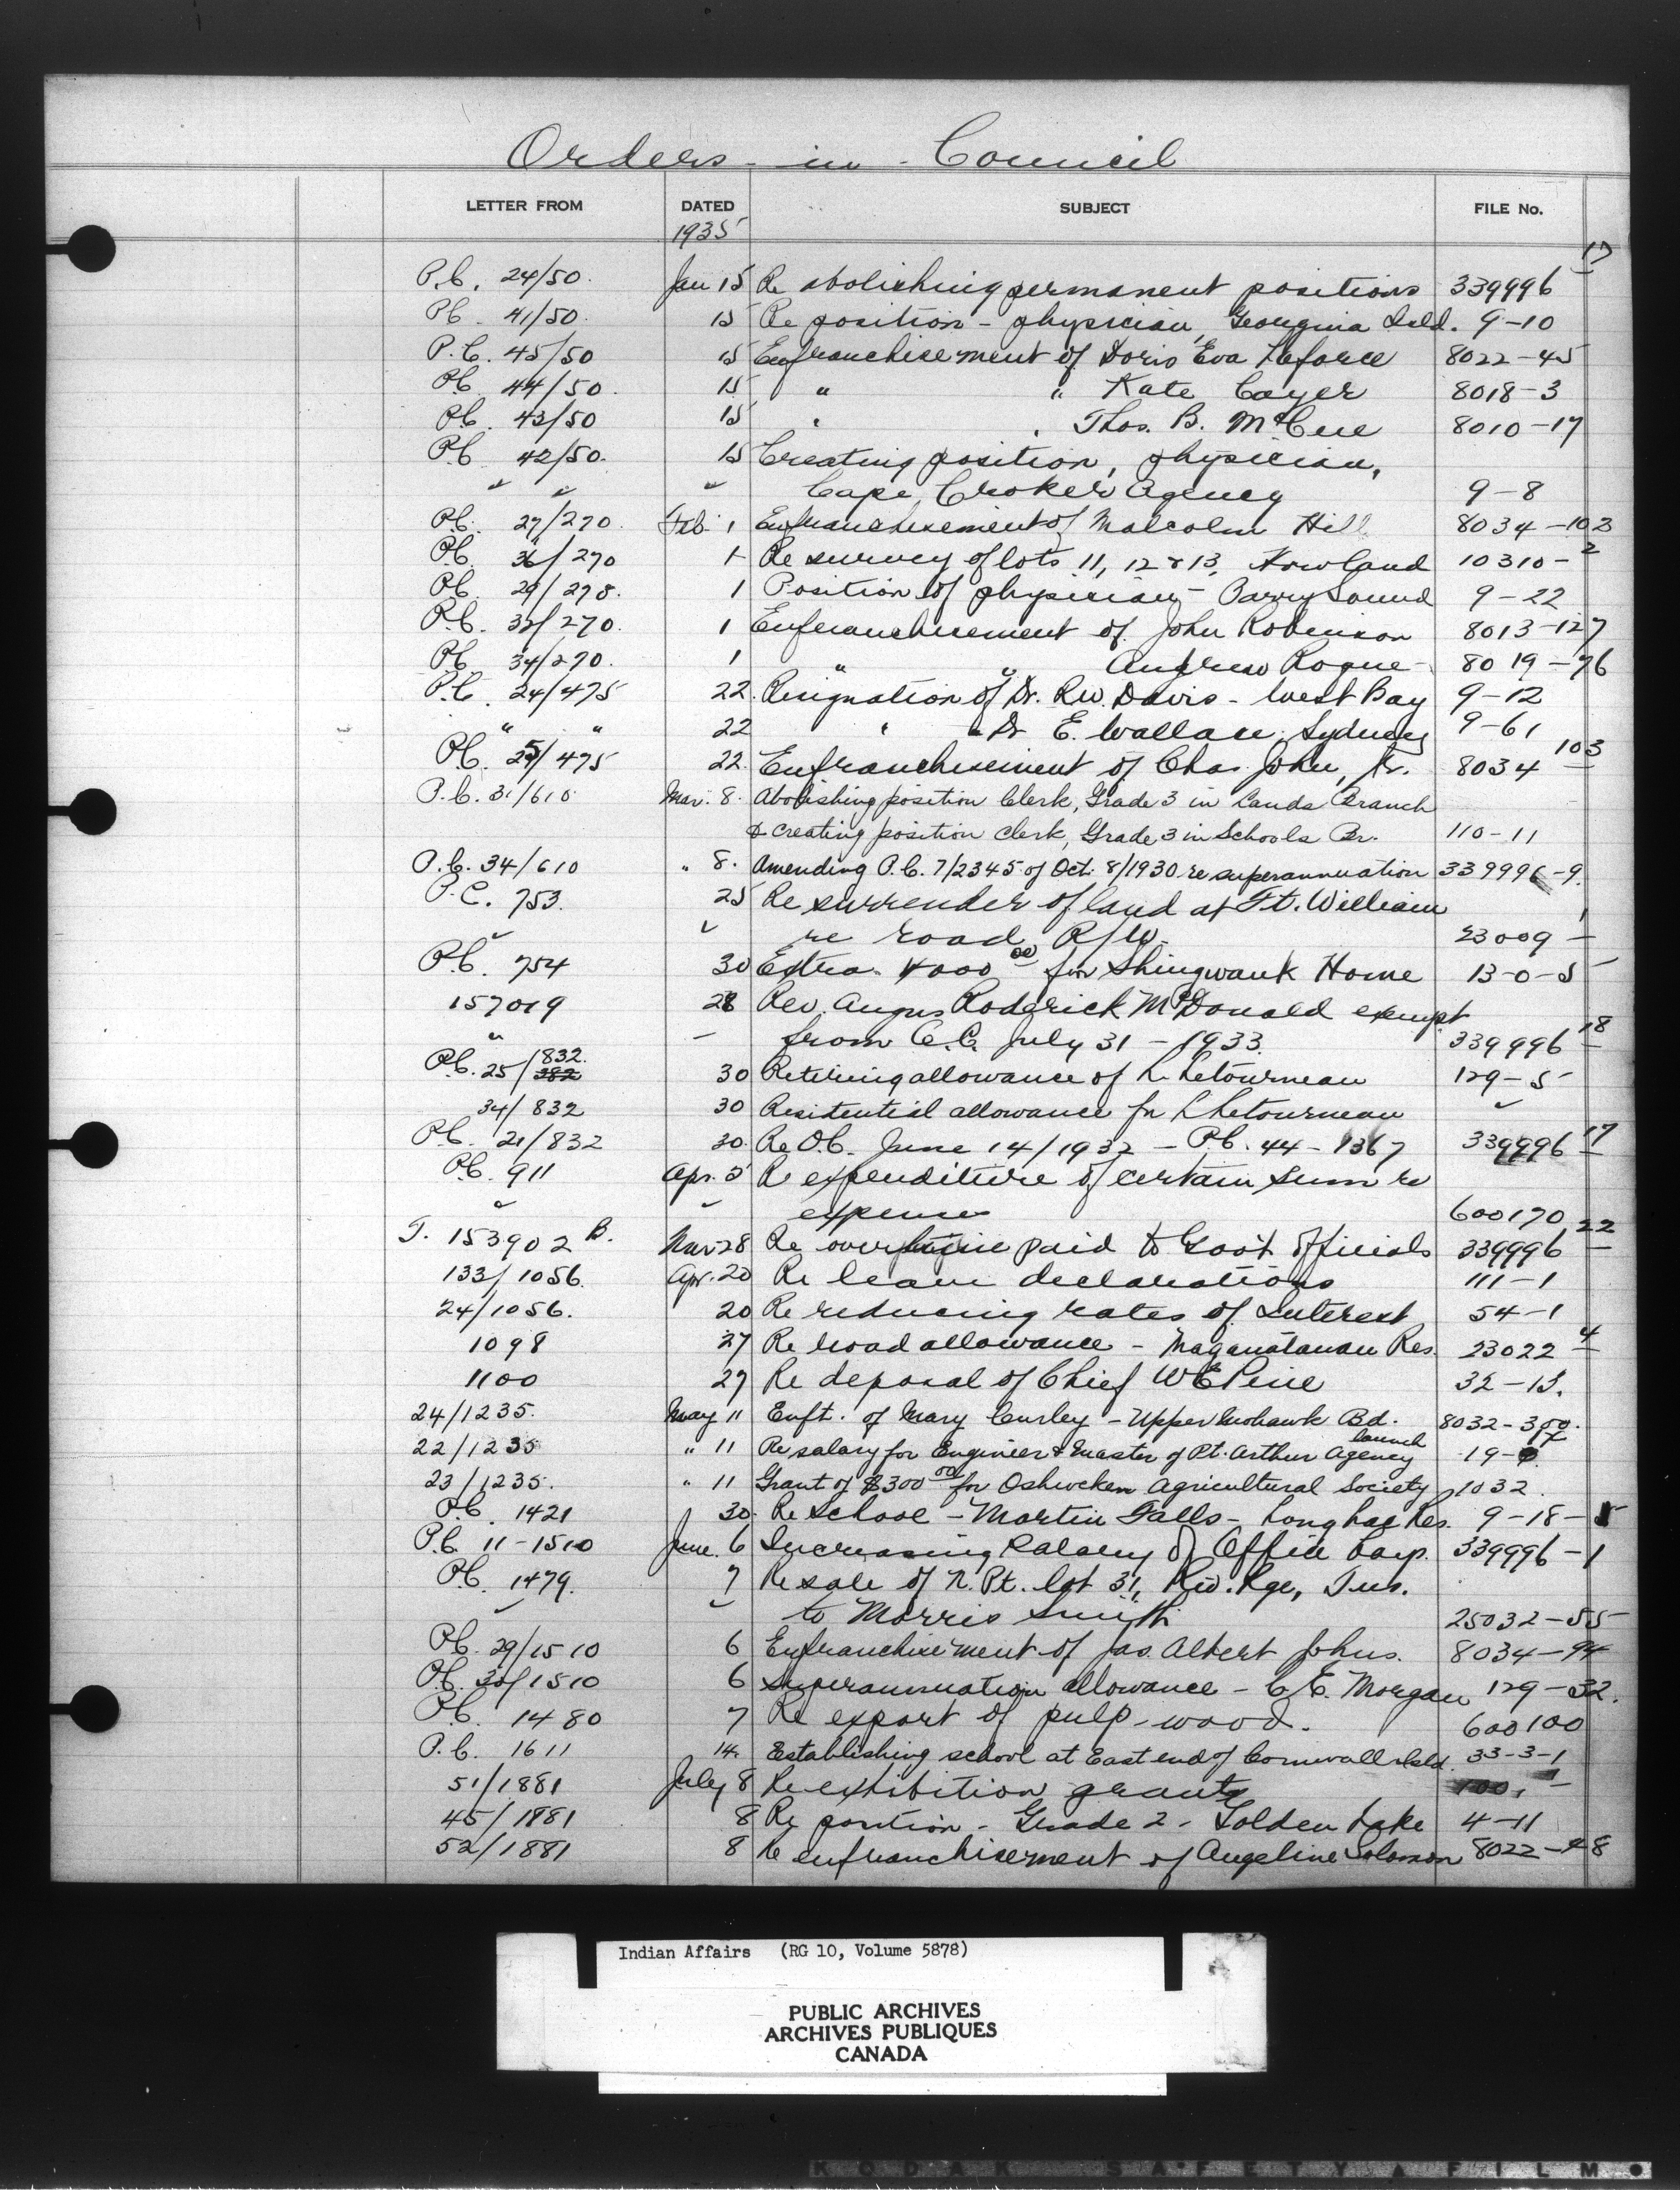 Orders - in - Council
LETTER FROM DATED SUBJECT FILE No.
1935
17
P.C. 24/50. Jan 15 Re abolishing permanent positions 339996
P.C. 41/50. 15 Re position - physician, Georgina Isld. 9-10
P.C. 45/50 15 Enfranchisement of Doris Eva Laforce 8022-45
P.C. 44/50. 15 " " Kate Cayer 8018-3
P.C. 43/50 15 " " Thos. B. McCue 8010-17
P.C. 42/50. 15 Creating position, physician,
" " " Cape Croker Agency 9-8
P.C. 27/270. Feb. 1 Enfranchisement of Malcolm Hill 8034-102
P.C. 36/270 1 Re survey of lots 11, 12 & 13, Howland 10310-2
P.C. 29/278. 1 Position of physician - Parry Sound 9-22
P.C. 32/270. 1 Enfranchisement of John Robinson 8013-127
P.C. 34/270. 1 " " Andrew Rogue 8019-76
P.C. 24/475 22. Resignation of Dr. R.W. Davis - West Bay 9-12
" " 22 " " Dr E. Wallace, Sydney 9-61
P.C. 25/475 22. Enfranchisement of Chas. John, Sr. 8034 103
P.C. 31/610 Mar. 8. Abolishing position Clerk, Grade 3 in Lands Branch
& creating position Clerk, Grade 3 in Schools Br. 110-11
P.C. 34/610 " 8. Amending P.C. 7/2345 of Oct. 8/1930 re superannuation 339996-9.
P.C. 753. 25 Re surrender of land at Ft. William
" " re road R/W. 23009 - 1
P.C. 754 30 Extra. 4000 00 for Shingwauk Home 13-0-5
157019 28 Rev. Angus Roderick McDonald exempt
" - from C.C. July 31 - 1933. 339996 18
P.C. 25/832. 382 30 Retiring allowance of L. Letourneau 129-5
34/832 30 Residential allowance for L Letourneau "
P.C. 21/832 30. Re O.C. June 14/1932 - P.C. 44-1367 339996 17
P.C. 911 Apr. 5 Re expenditure of certain sum re
" " expenses 600170
T. 153902 B. Mar 28 Re overtime paid to Gov't Officials 339996 22
133/1056. Apr. 20 Re leave declarations 111-1
24/1056. 20 Re reducing rates of Interest 54-1
1098 27 Re road allowance - Maganatawan Res. 23022 4
1100 27 Re deposal of Chief W E Pine 32-13.
24/1235. May 11 Enft. of Mary Curley - Upper Mohawk Bd. 8032-
22/1235 " 11 Re salary for Engineer & Master of Pt. Arthur Agency launch 19-
23/1235. " 11 Grant of $300 00 for Oshweken Agricultural Society 1032.
P.C. 1421 30. Re School - Martin Falls - Long Lac Res. 9-18-5
P.C. 11-1510 June. 6 Increasing Salary of Office Emp. 339996-1
P.C. 1479. 7 Re sale of N. Pt. lot 31, Riv. Rge, Tus.
" " to Morris Smith 25032-55
P.C. 29/1510 6 Enfranchisement of Jas. Albert Johns. 8034-94
P.C. 30/1510 6 Superannuation allowance - C.E. Morgan 129-32.
P.C. 1480 7 Re export of pulp-wood. 600100
P.C. 1611 14. Establishing school at East end of Cornwall Isld. 33-3-1
51/1881 July 8 Re exhibition grants
45/1881 8 Re position - Grade 2 - Golden Lake 4-11
52/1881 8 Re enfranchisement of Angeline Solomon 8022-48
Indian Affairs (RG 10, Volume 5878)
PUBLIC ARCHIVES
ARCHIVES PUBLIQUES
CANADA
KODAK SAFETY FILM